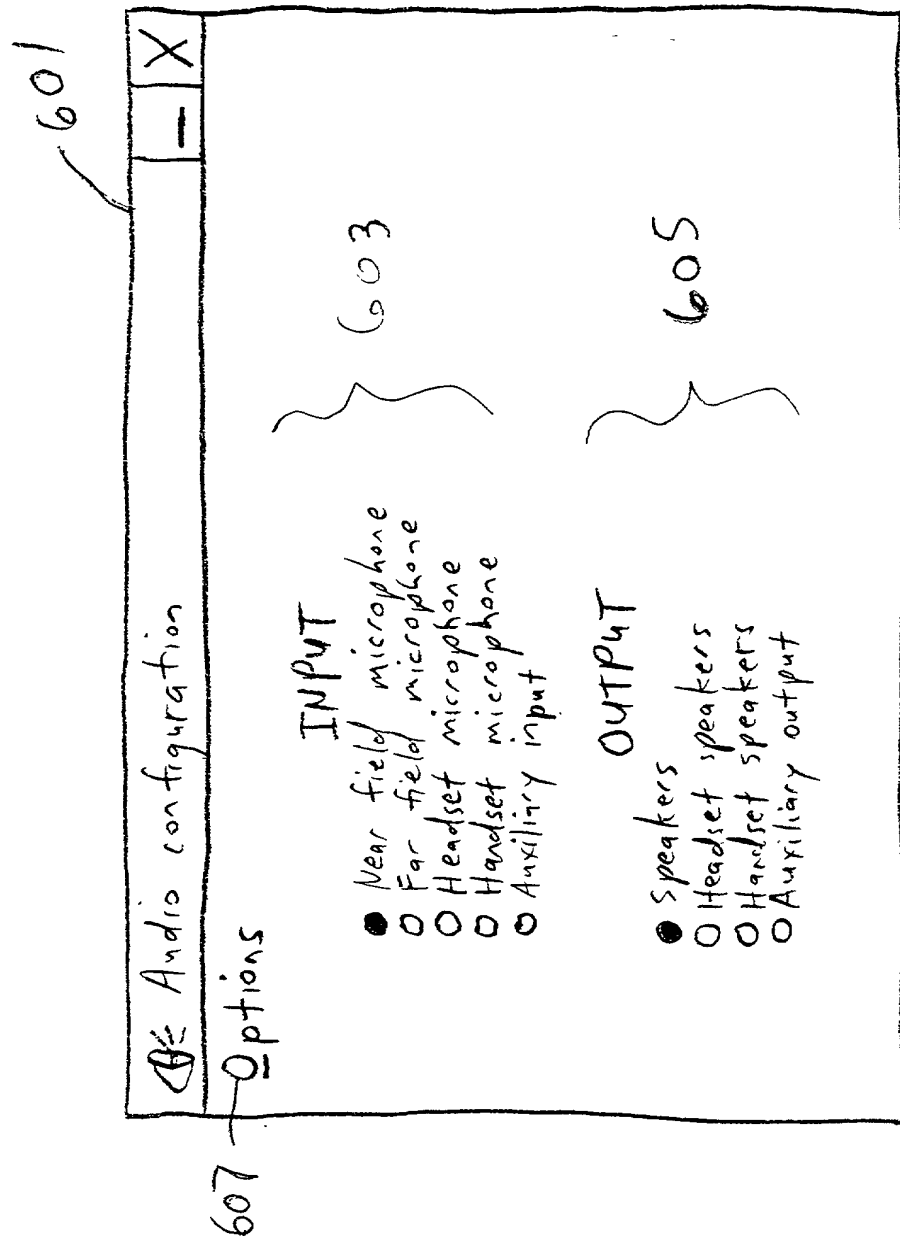 601
Audio configuration – X
607 Options
INPUT
Near field microphone
Far field microphone
Headset microphone
Handset microphone
Auxiliary input
603
OUTPUT
Speakers
Headset speakers
Handset speakers
Auxiliary output
605